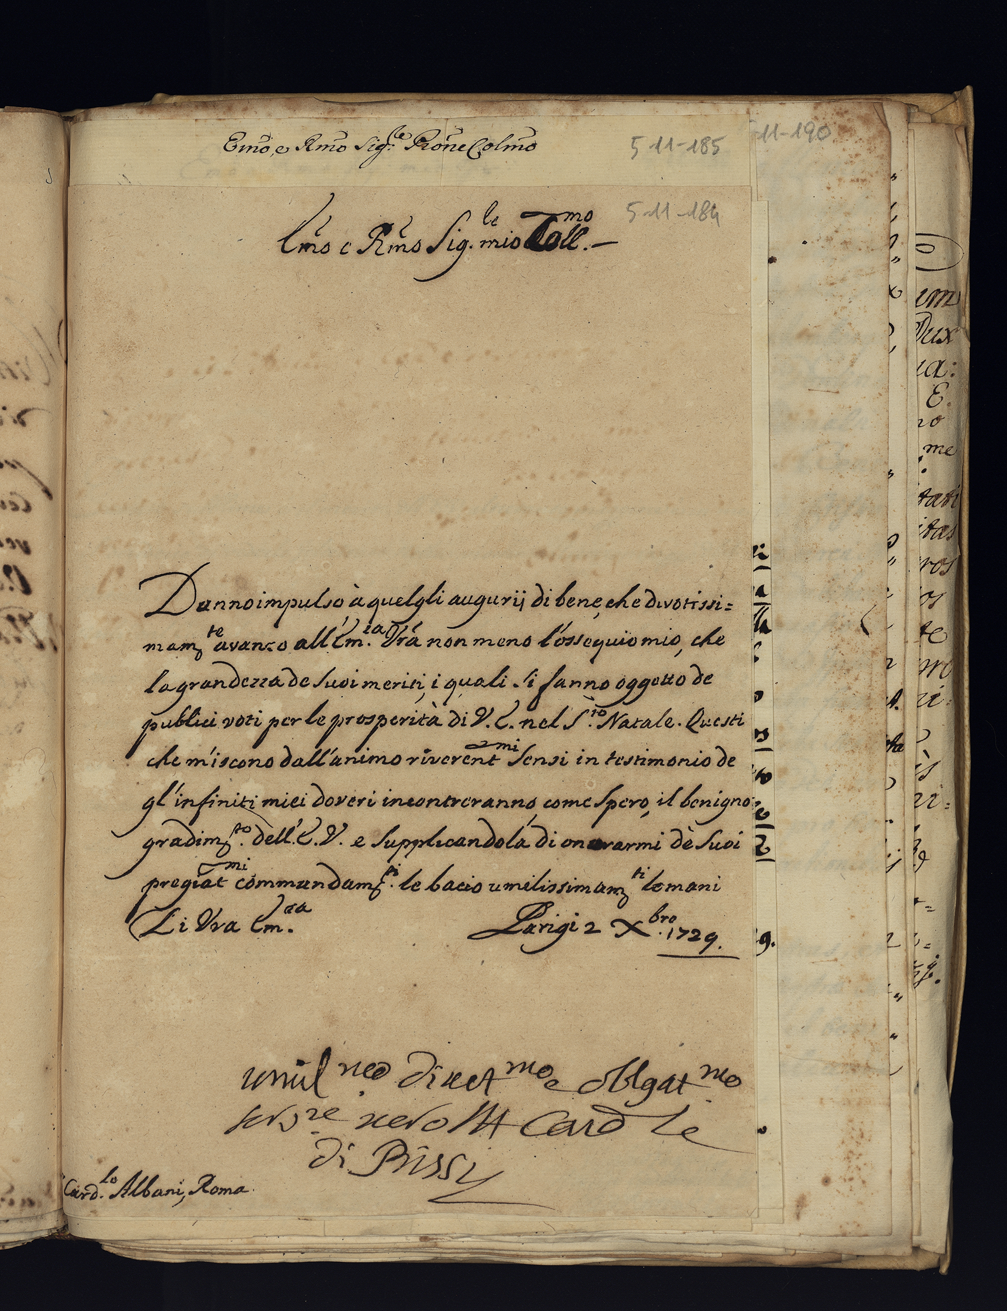 Emo, e Rmo Sig.re Prone Colmo
5-11-185
11-190
5-11-184
Emo e Rmo Sig.re mio Coll.mo
Danno impulso à quelgli augurij di bene, che divotissi=
mam.te avanzo all'Em.za Vrá non meno l'ossequio mio, che
la grandezza de suoi meriti, i quali si fanno oggetto de
publici voti per le prosperità di V. E. nel S.to Natale. Questi
che m'iscono dall'animo riverent.mi sensi in testimonio de
gl'infiniti miei doveri incontreranno, come spero, il benigno
gradim.to dell'E.V. e supplicandola di onorarmi dè suoi
pregiat.mi commandam.ti le bacio umilissimam.te le mani
Di Vra Em.za Parigi 2 Xbro. 1729.
umil.mo diuot.mo e oblgat.mo
ser.re vero Il Card.le
di Bissy
Card.le Albani, Roma